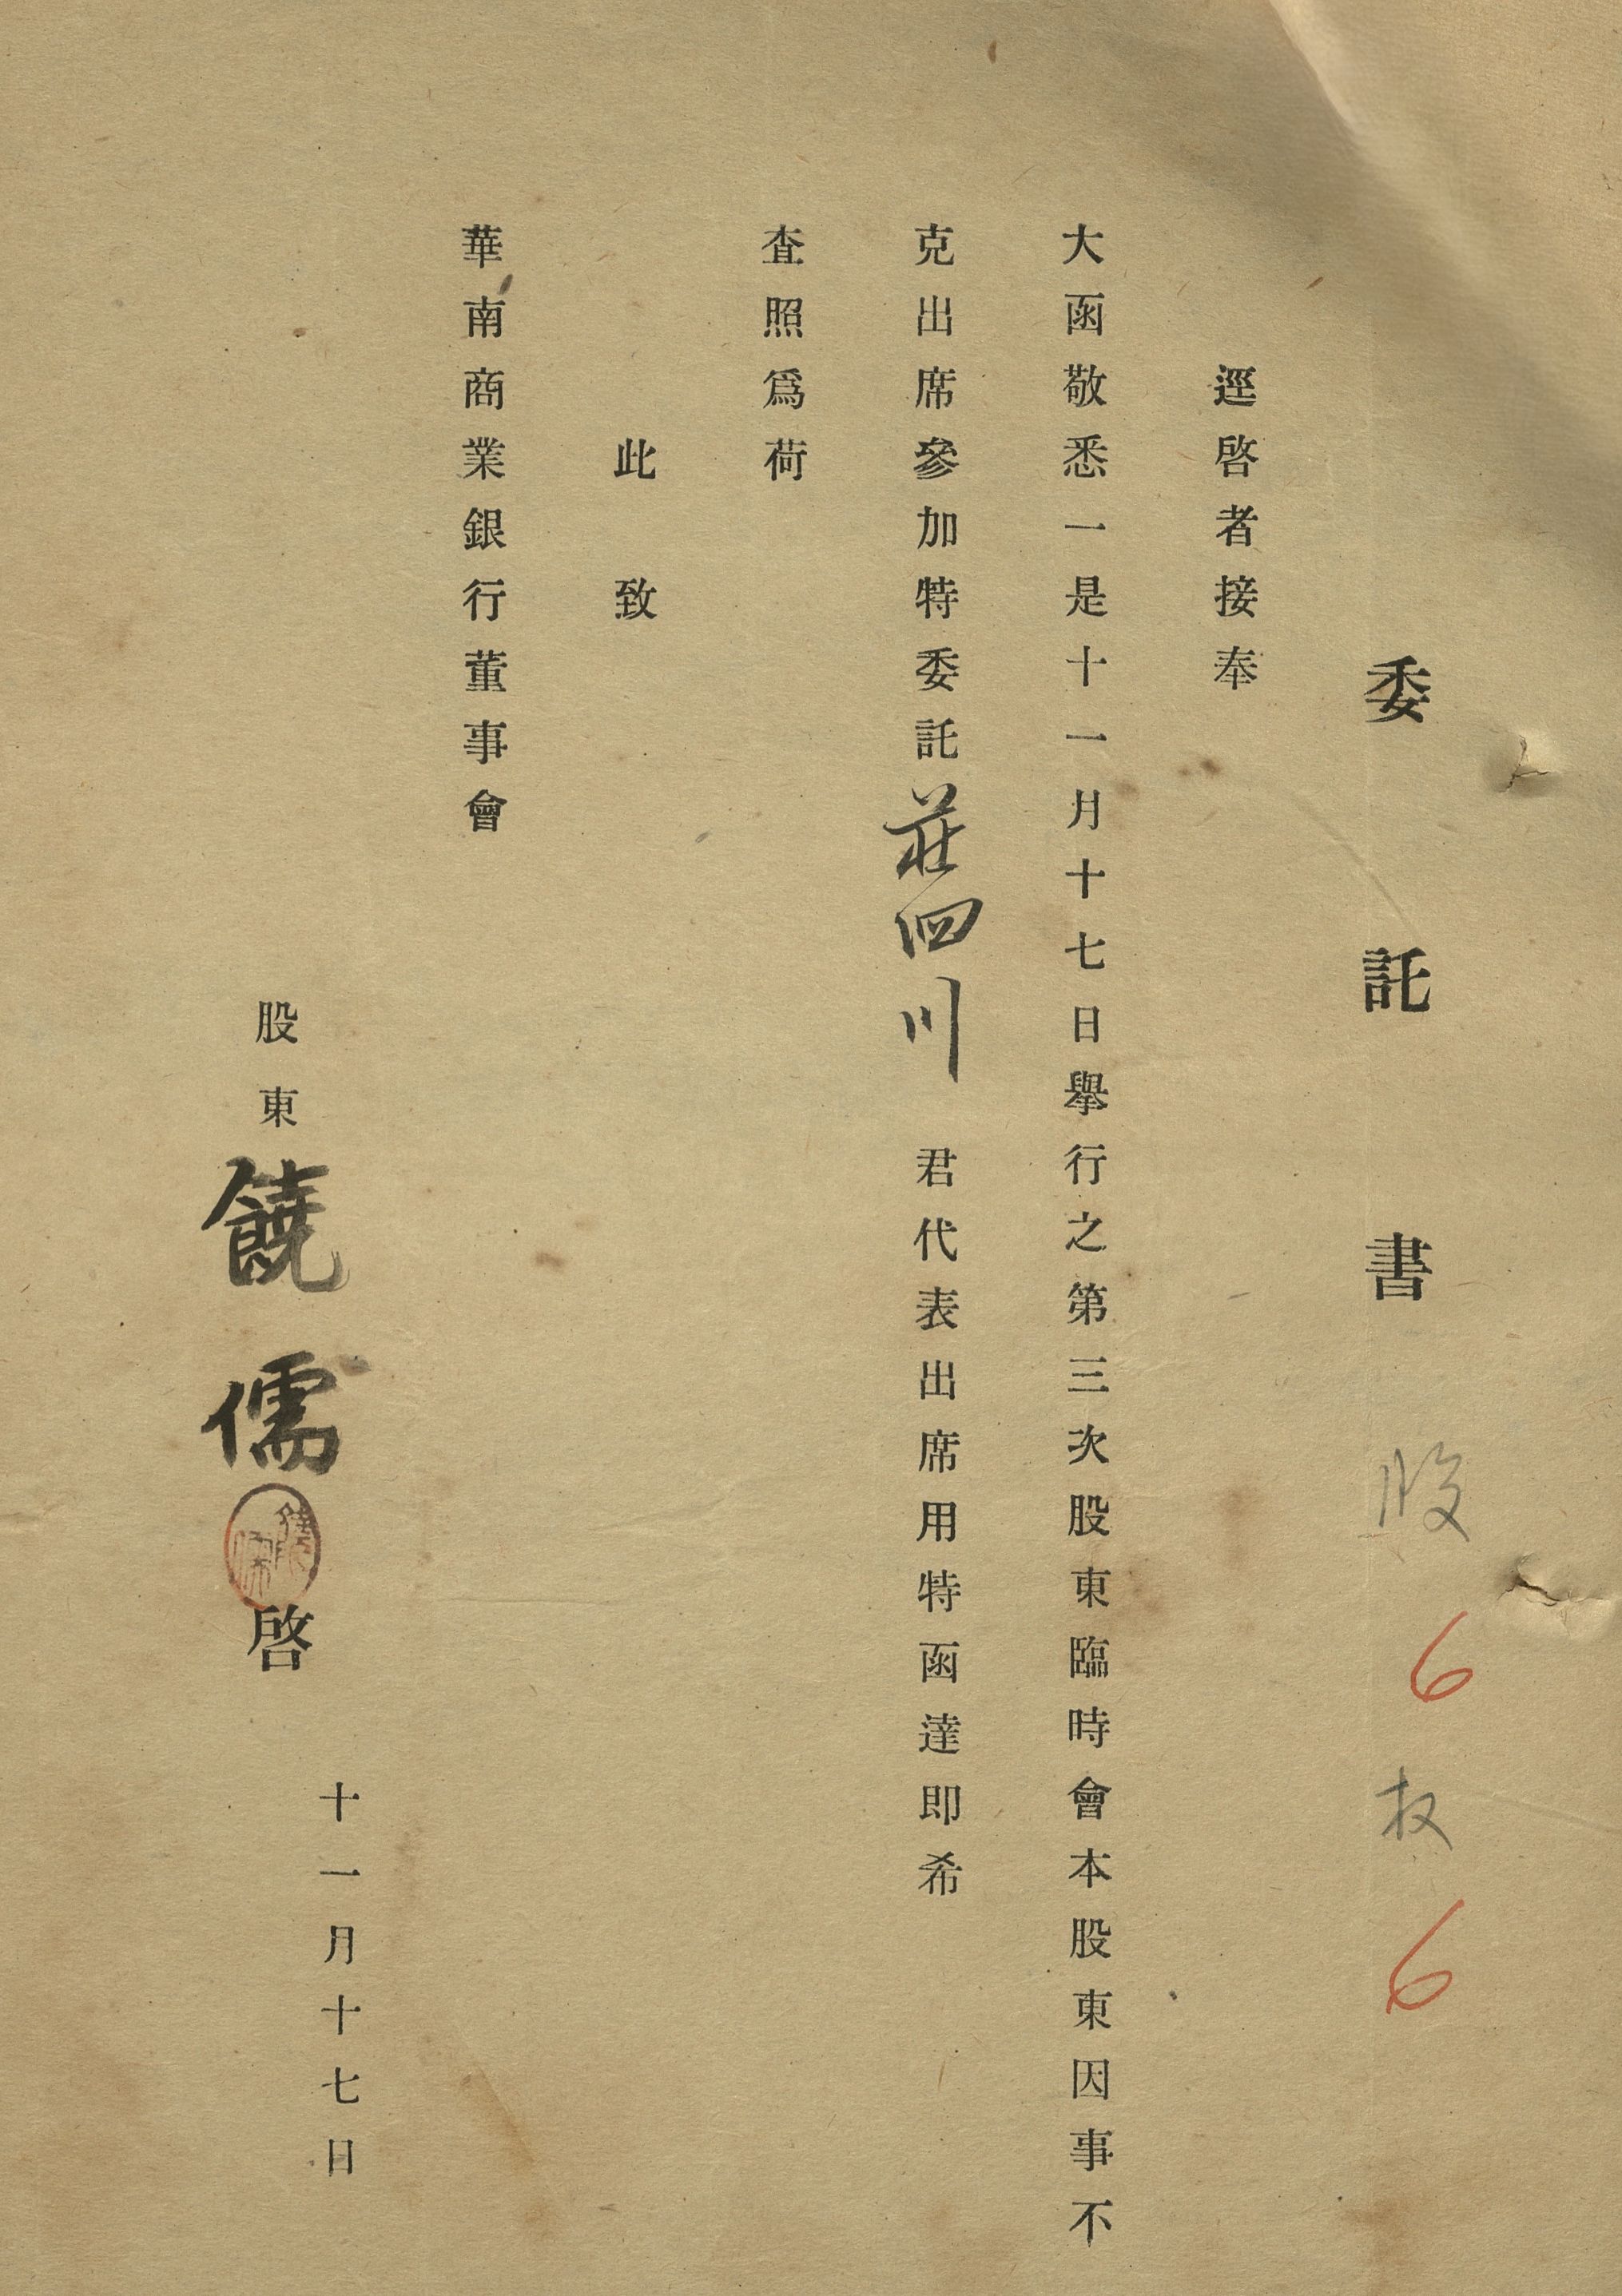 委託書 股 6 权 6
逕啓者接奉
大函敬悉一是十一月十七日舉行之第三次股東臨時會本股東因事不
克出席參加特委託莊四川 君代表出席用特函達即希
查照爲荷
此致
華南商業銀行董事會
股東 饒儒 啓
十一月十七日